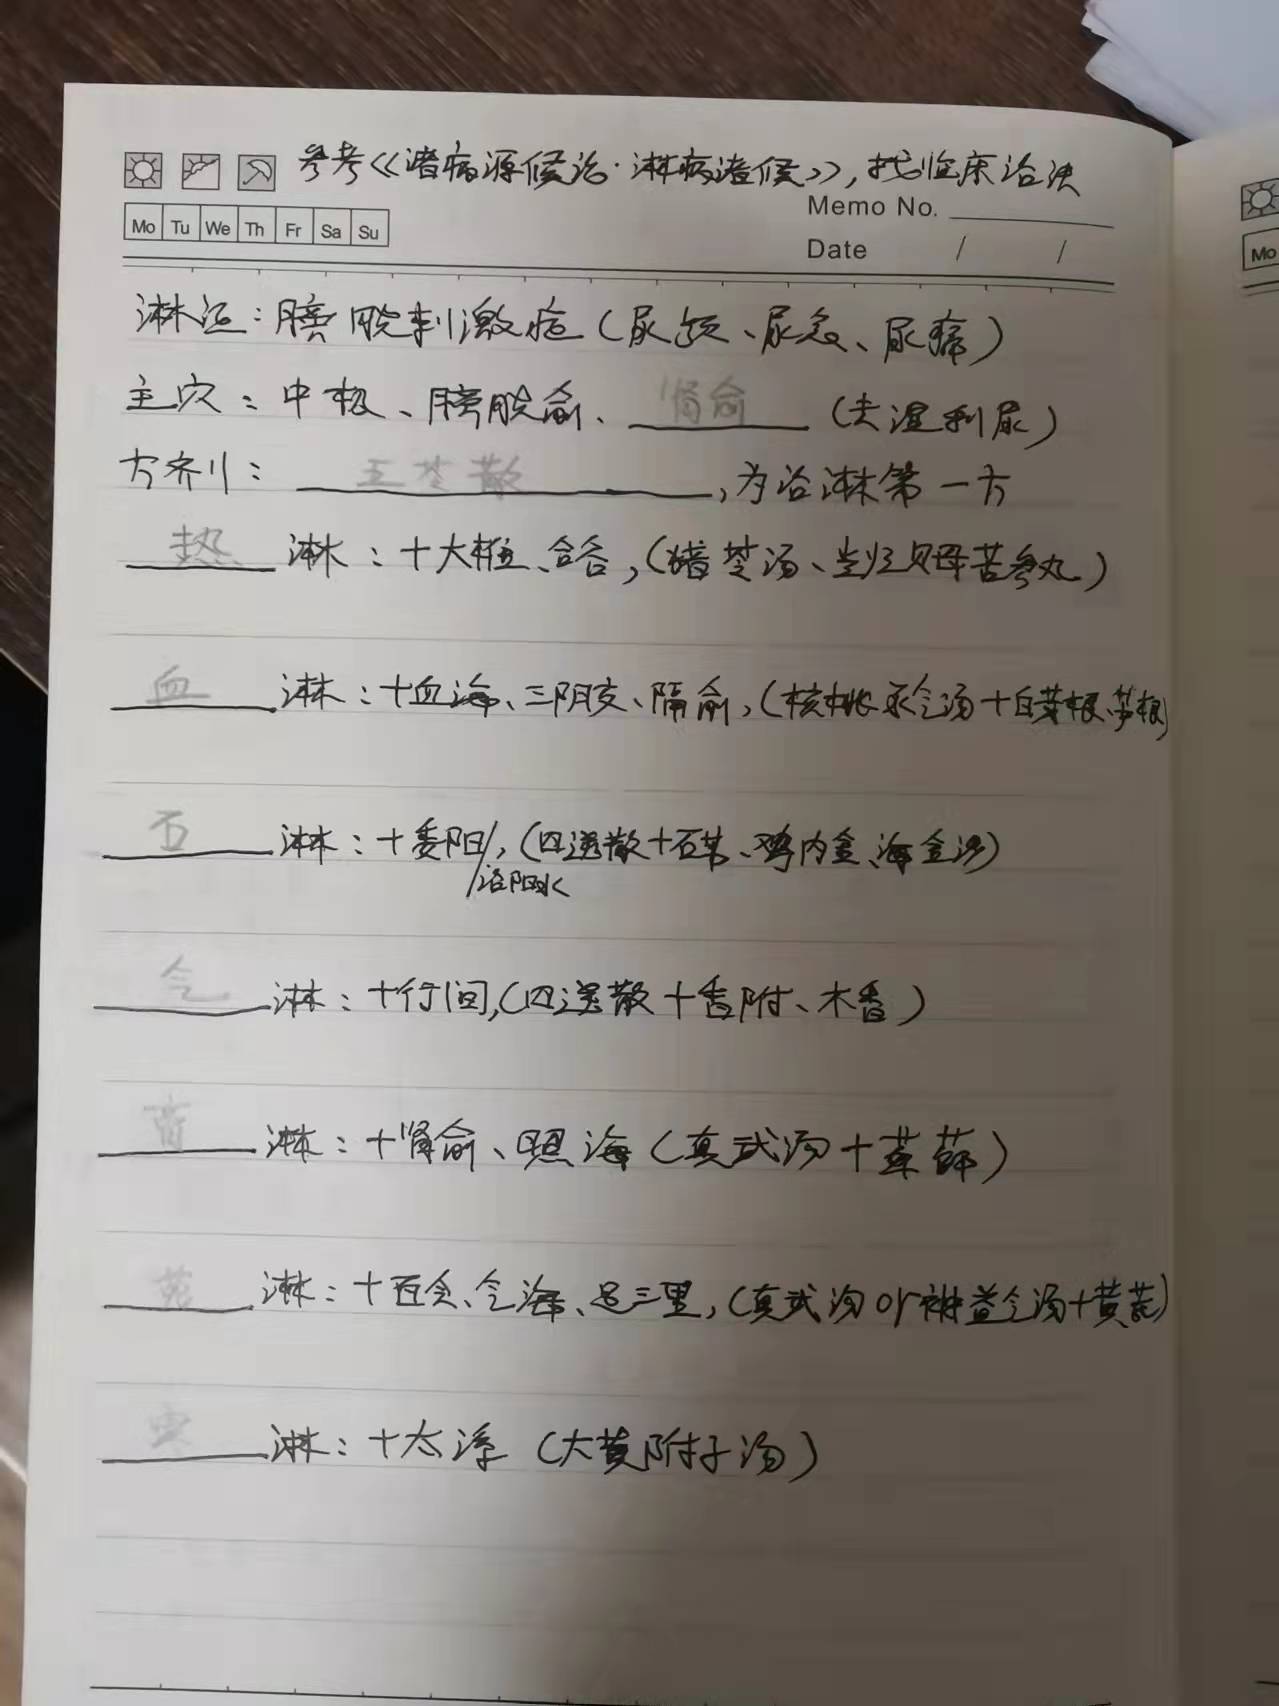 参考《诸病源候论·淋病诸候》,找临床治法
Mo Tu We Th Fr Sa Su
Memo No.
Date / /
Mo
淋证：膀胱刺激症（尿频、尿急、尿痛）
主穴：中极、膀胱俞、肾俞（去湿利尿）
方剂：五苓散,为治淋第一方
热淋：+大椎、合谷,（猪苓汤、当归贝母苦参丸）
血淋：+血海、三阴交、隔俞,（核桃承气汤+白茅根、茅根）
石淋：+委阳/,（四逆散+石苇、鸡内金、海金沙）
/治阳水
气淋：+行间,（四逆散+香附、木香）
膏淋：+肾俞、照海（真武汤+萆薢）
劳淋：+百会、气海、足三里,（真武汤or补益气汤+黄芪）
寒淋：+太溪（大黄附子汤）